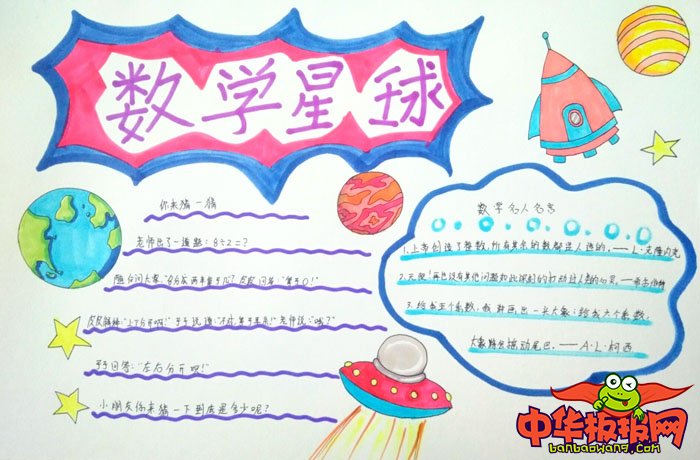 数学星球
你来猜一猜
老师出了一道题:8÷2=?
问大家:"8分成两半等于几?"皮皮回答:"等于0!"
皮皮解释:"上下分开啊!"丁丁说道:"不对,等于!"老师说:"哦?"
丁丁回答:"左右分开呗!"
小朋友你来猜一下到底是多少呢?
数学名人名言
1.上帝创造了整数,所有其余的数都是人造的。——L·克隆内克
2.无限!再也没有其他问题如此深刻的打动过人类的心灵。——希尔伯特
3.给我五个系数,我讲画出一头大象;给我六个系数,
大象将会摇动尾巴。——A·L·柯西
中华板报网
banbaowang.com